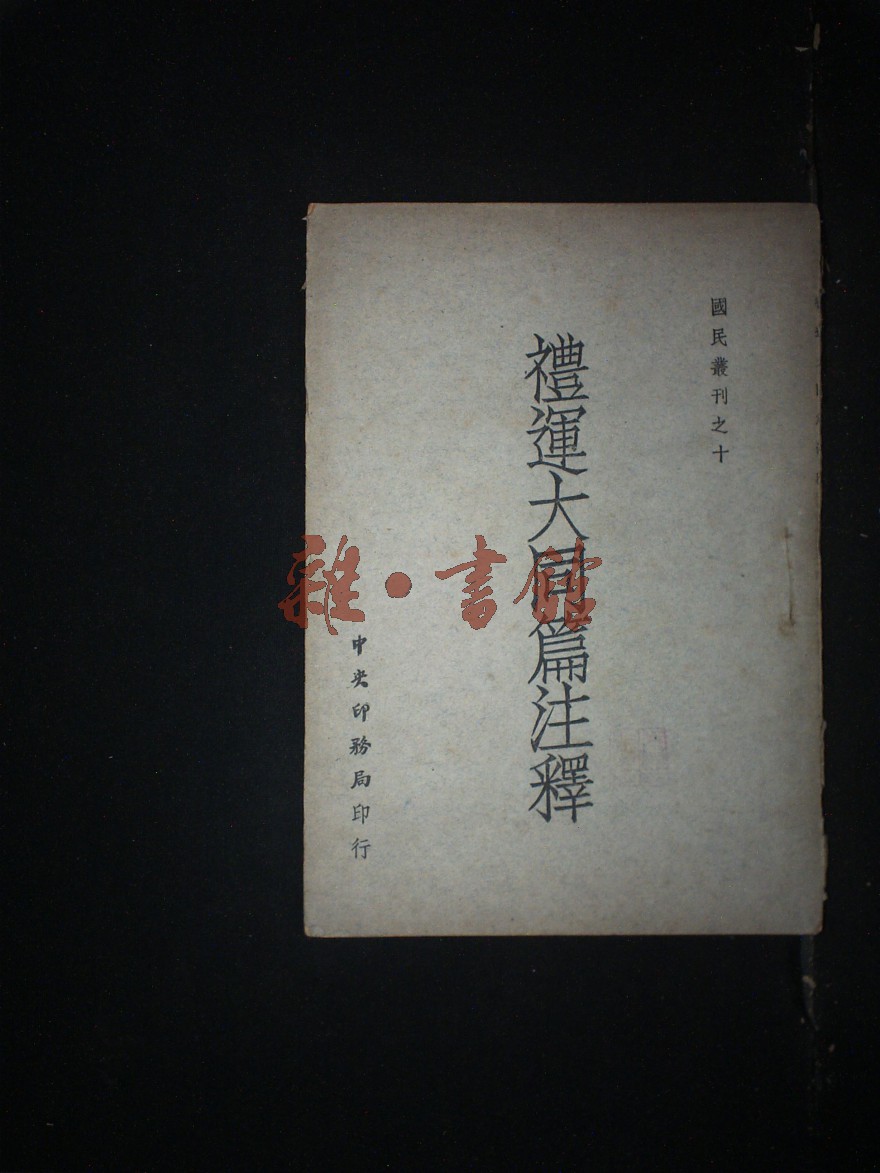 國民叢刊之十
禮運大同篇注釋
中央印務局印行
雜·書館